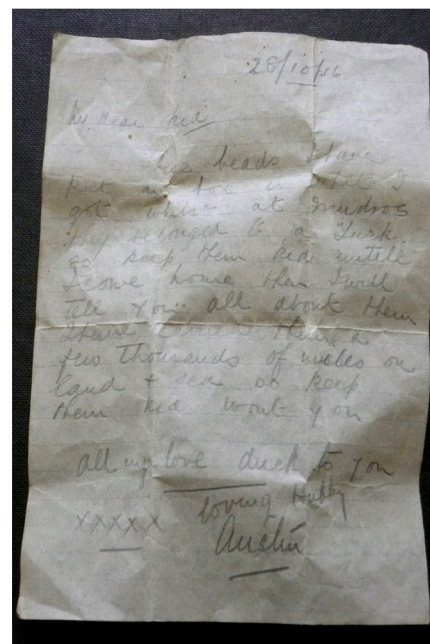 28/10/16
My dear kid
beads I have
put in box is what I
got whilst at Mudros
they belonged to a Turk
so keep them kid untill
I come home then I will
tell you all about them
I have them a
few thousands of miles on
land + sea so keep
them kid wont you
all my love duck to you
loving Hubby
xxxxx Austin